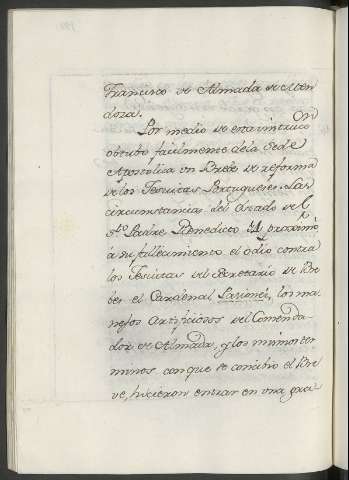 Francisco de Almada de Men
doza.
Por medio de esta
obtubo facilmente de la Sede
Apostolica un Breve de reforma
de los Jesuitas Portugueses. Las
circunstancias del Estado de el
Sto. Padre Benedicto proximo
á su fallecimiento el odio contra
los Jesuitas del Secretario de Bre
bes el Cardenal Pasionei, los ma
nejos artificiosos del Comenda
dor de Almada, y los mismos ter
minos con que se concibio el Bre
ve, hicieron entrar en una gra